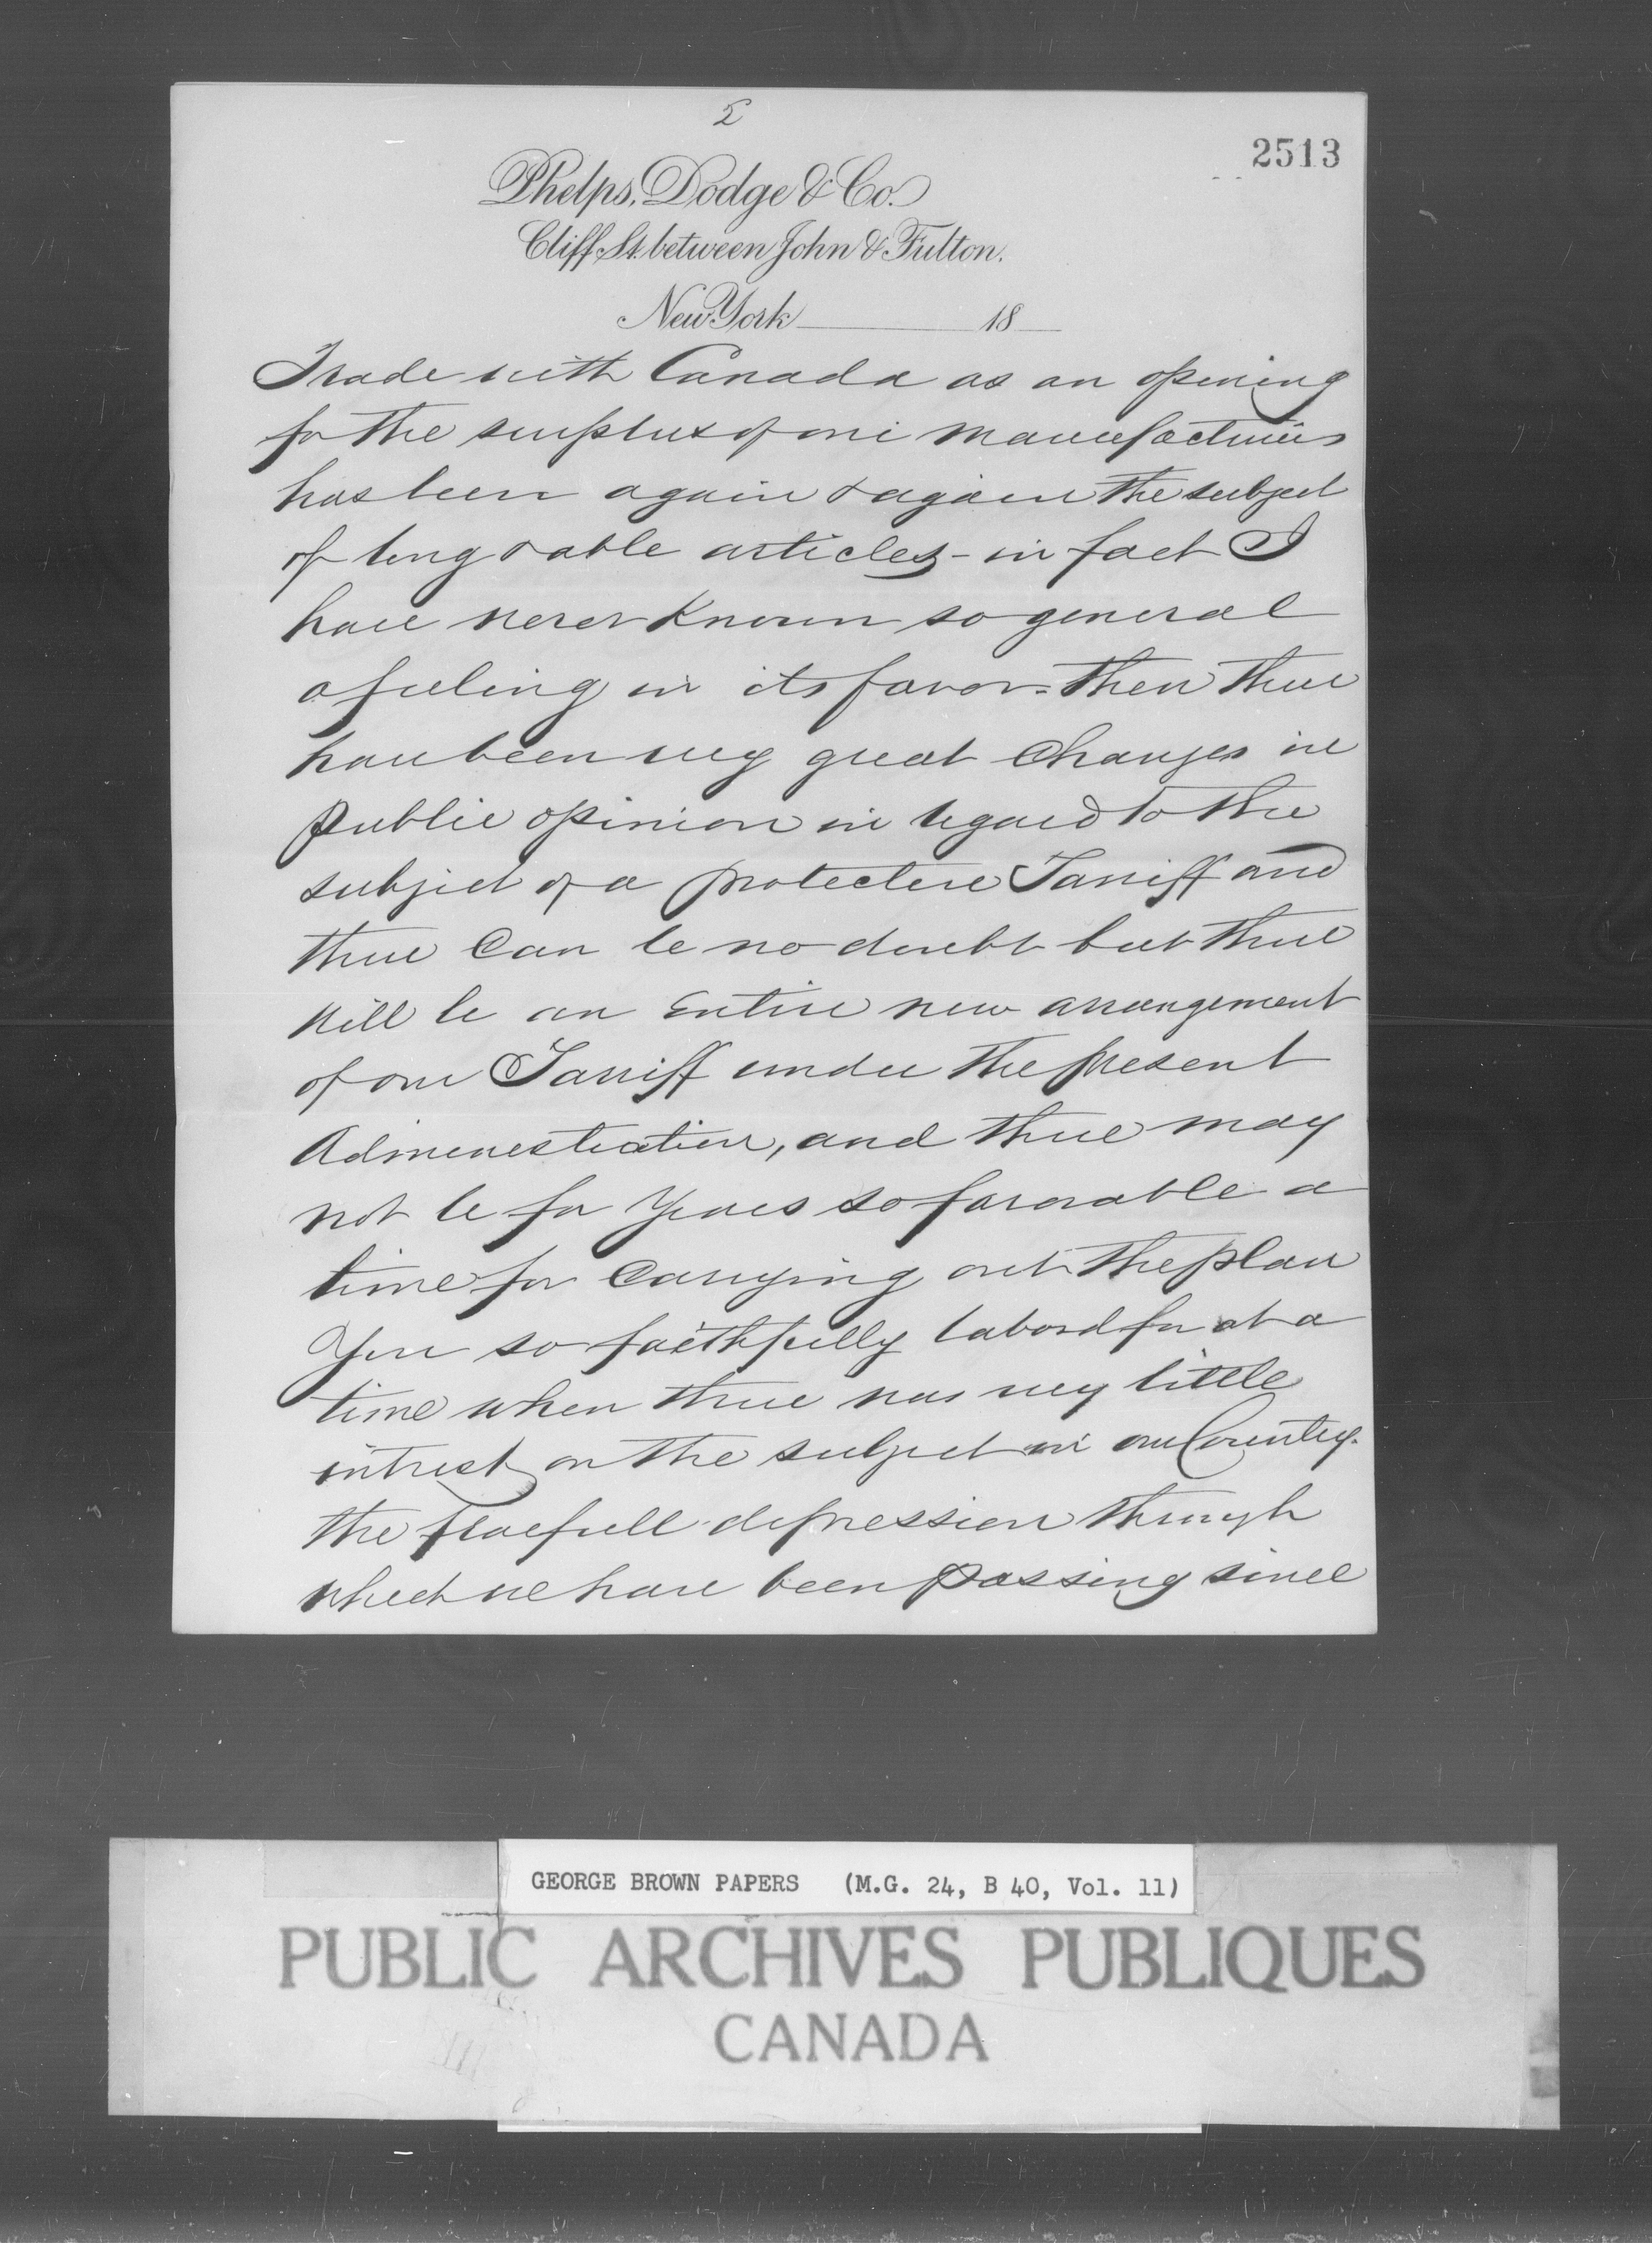 2
2513
Phelps, Dodge & Co.
Cliff St. between John & Fulton.
New York 18
Trade with Canada as an opening
for the surplus of our manufactures
has been again & again the subject
of long & able articles - in fact I
have never known so general
a feeling in its favor. Then there
have been very great changes in
public opinion in regard to the
subject of a protective Tarriff and
there can be no doubt but there
will be an Entire new arrangement
of our Tarriff under the present
Administration, and there may
not be for years so favorable a
time for carrying out the plan
you so faithfully labord for at a
time when there was very little
intrest on the subject in our Country.
the depression through
which we have been passing since
GEORGE BROWN PAPERS (M.G. 24, B 40, Vol. 11)
PUBLIC ARCHIVES PUBLIQUES
CANADA